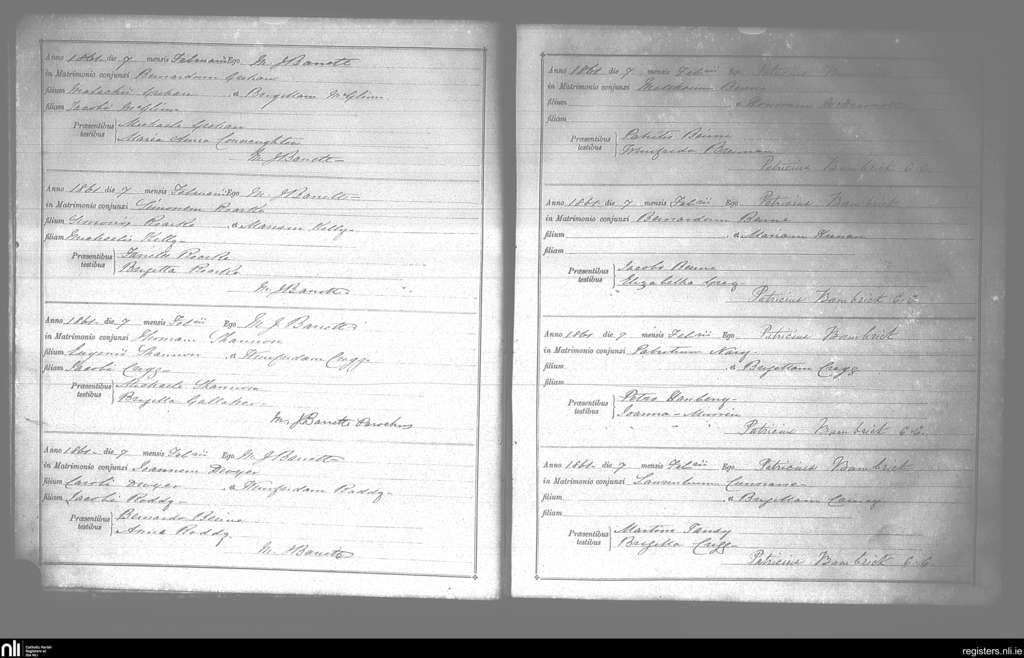 Anno 1861 die 7 mensis Februarii Ego M J Barrett
in Matrimonio conjunxi Bernardum Gehan
filium Malachii Gehan a Brigittam McGlinn
filiam Jacobi McGlinn
Præsentibus testibus Michaele Gehan
Maria Anna Connaughton
M J Barrett
Anno 1861 die 7 mensis Februarii Ego M J Barrett
in Matrimonio conjunxi Simonem Roarke
filium Simonis Roarke a Mariam Kelly
filiam Michaelis Kelly
Præsentibus testibus Roarke
Brigitta Roarke
M J Barrett
Anno 1861 die 7 mensis Feb Ego M J Barrett
in Matrimonio conjunxi Thomam Shannon
filium Eugenii Shannon a Winifridam Cregg
filiam Jacobi Cregg
Præsentibus testibus Michaele Shannon
Brigitta Gallaher
M J Barrett Parochus
Anno 1861 die 7 mensis Feb Ego M J Barrett
in Matrimonio conjunxi Joannem Dwyer
filium Caroli Dwyer a Winifridam Roddy
filiam Jacobi Roddy
Præsentibus testibus Bernardo Beirne
Anna Roddy
M J Barrett
Anno 1861 die 7 mensis Feb Ego Patricius
in Matrimonio conjunxi Beirne
filium a Honoram McDermott
filiam
Præsentibus testibus Patritio Beirne
Winifrida Brennan
Patricius Bambrick C.C.
Anno 1861 die 7 mensis Feb Ego Patricius Bambrick
in Matrimonio conjunxi Bernardum Beirne
filium a Mariam
filiam
Præsentibus testibus Jacobo Beirne
Elizabetha
Patricius Bambrick C.C.
Anno 1861 die 7 mensis Feb Ego Patricius Bambrick
in Matrimonio conjunxi Patritium Nary
filium a Brigittam Cregg
filiam
Præsentibus testibus Petro
Joanna
Patricius Bambrick C.C.
Anno 1861 die 7 mensis Feb Ego Patricius Bambrick
in Matrimonio conjunxi Laurentium
filium a Brigittam
filiam
Præsentibus testibus Martino
Brigitta Cregg
Patricius Bambrick C.C.
nli Catholic Parish
Registers at
the NLI
registers.nli.ie